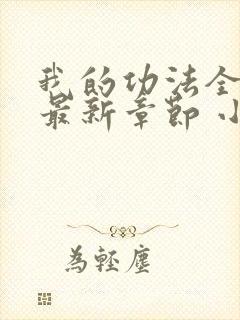 我的功法全
最新章節 小
為輕塵